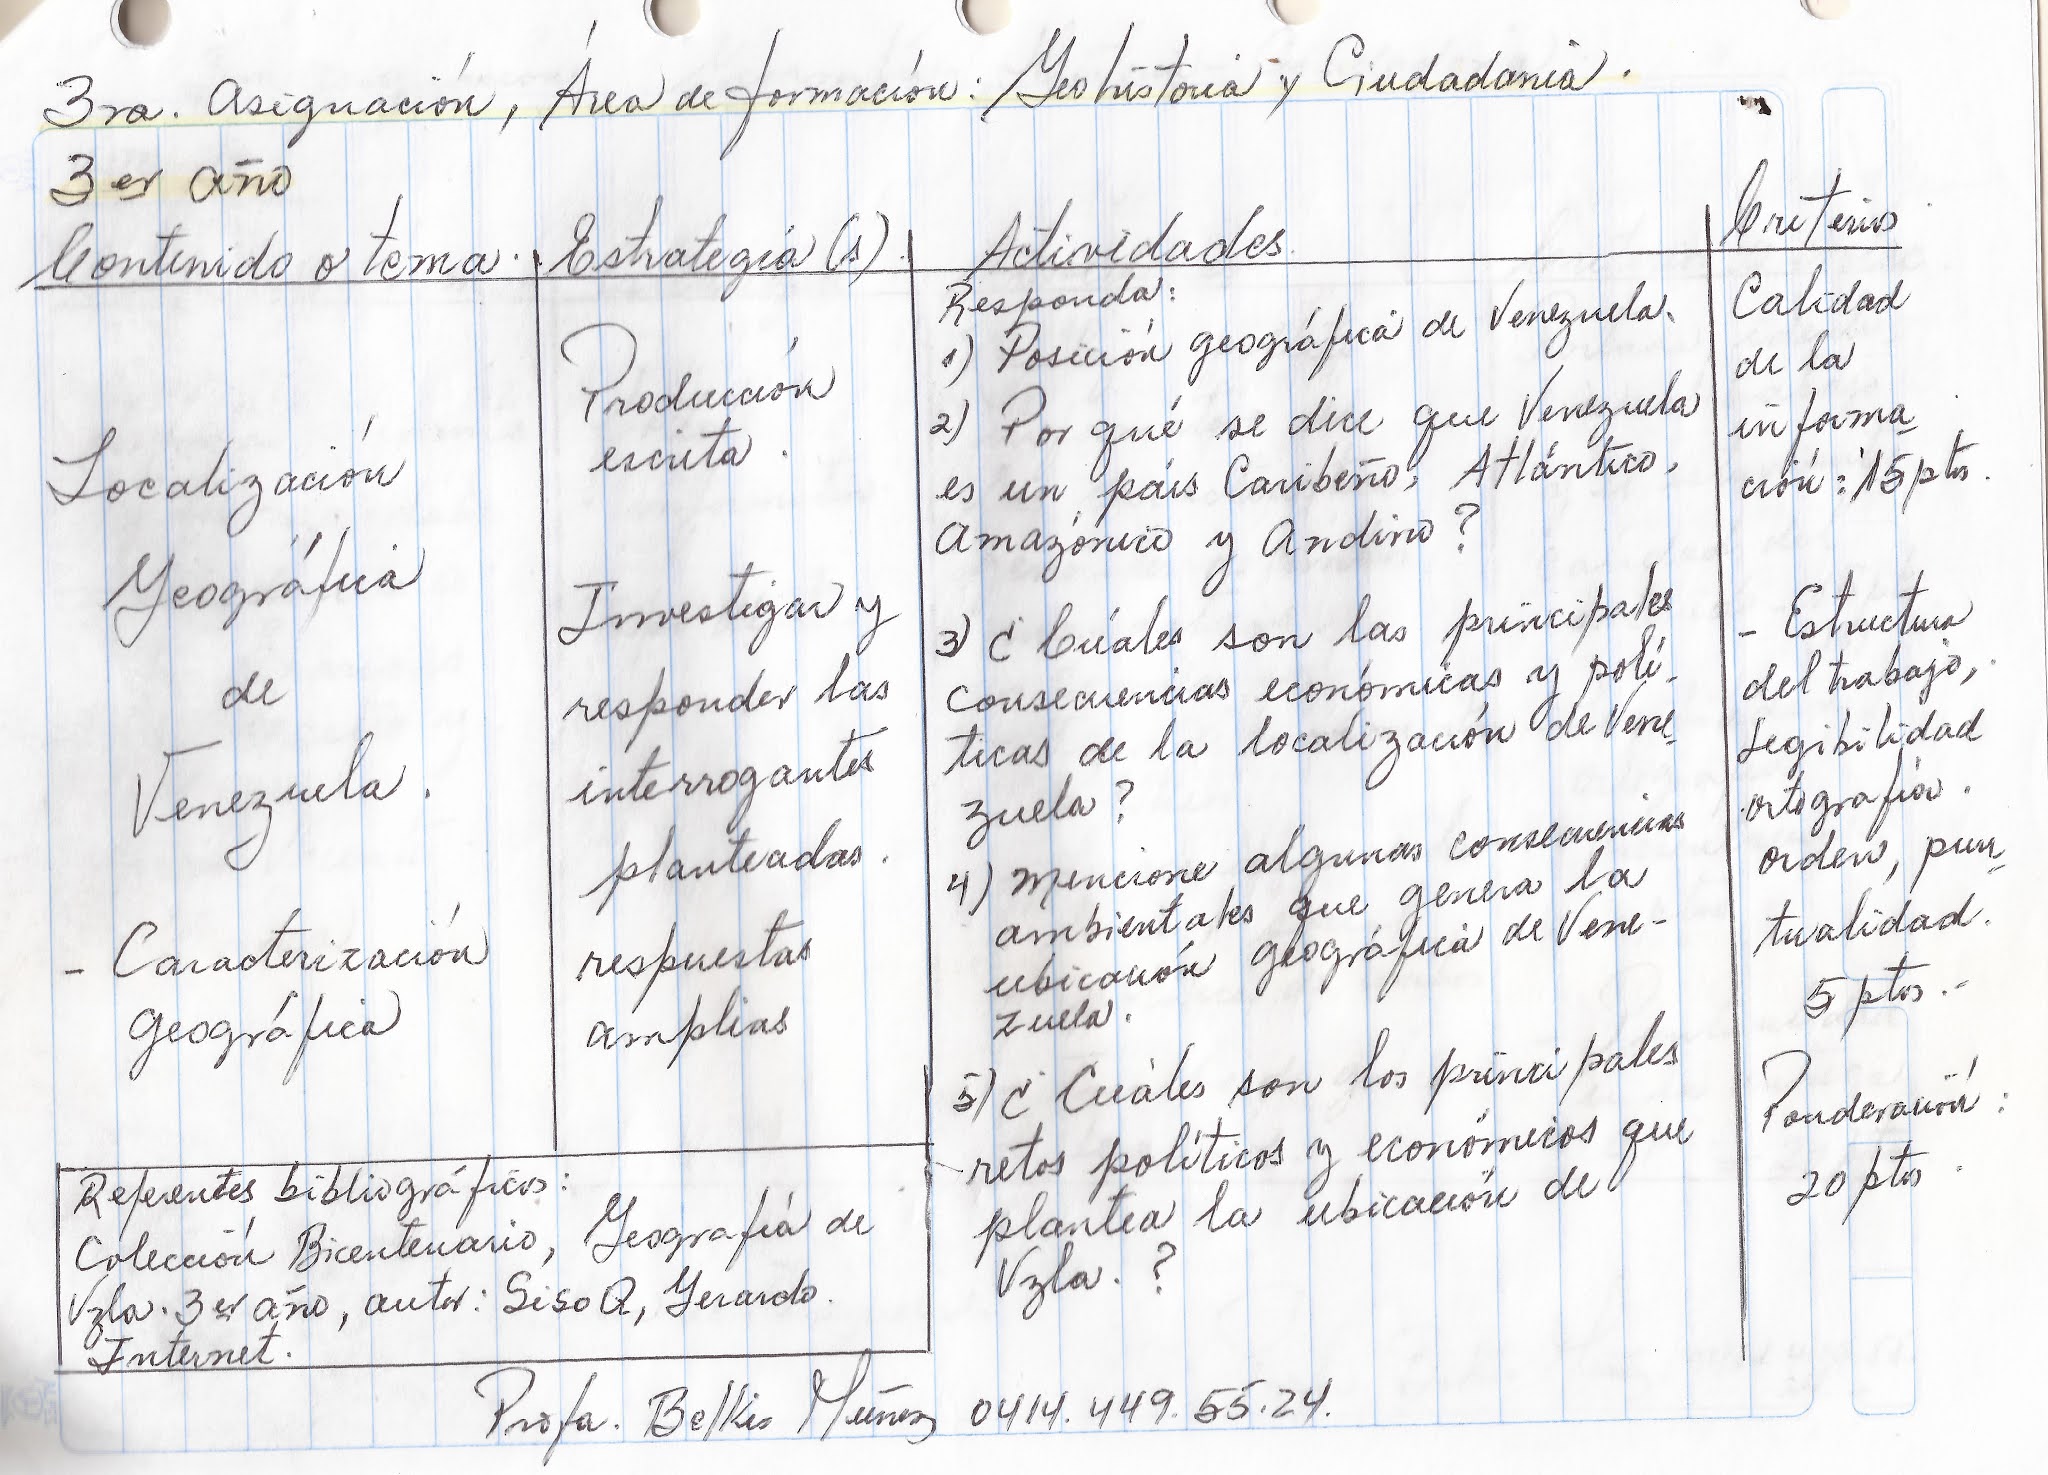 3ra. Asignación, Área de formación: Geohistoria y Ciudadania.
3er año
Contenido o tema.
Localización
Geográfica
de
Venezuela.
- Caracterización
geográfica
Estrategia (s).
Producción
escrita.
Investigar y
responder las
interrogantes
planteadas.
respuestas
amplias
Actividades.
Responda:
1) Posición geográfica de Venezuela.
2) Por qué se dice que Venezuela
es un país Caribeño, Atlántico,
Amazónico y Andino?
3) ¿Cuáles son las principales
consecuencias económicas y polí-
ticas de la localización de Vene-
zuela?
4) Mencione algunas consecuencias
ambientales que genera la
ubicación geográfica de Vene-
zuela.
5) ¿Cuáles son los principales
retos políticos y económicos que
plantea la ubicación de
Vzla. ?
Criterios
Calidad
de la
informa-
ción: 15 pts.
- Estructura
del trabajo,
legibilidad
ortografía.
orden, pun-
tualidad.
5 pts.-
Ponderación:
20 pts.
Referentes bibliográficos:
Colección Bicentenario, Geografía de
Vzla. 3er año, autor: Siso Q, Gerardo.
Internet.
Profa. Belkis Muñoz 0414.449.55.24.